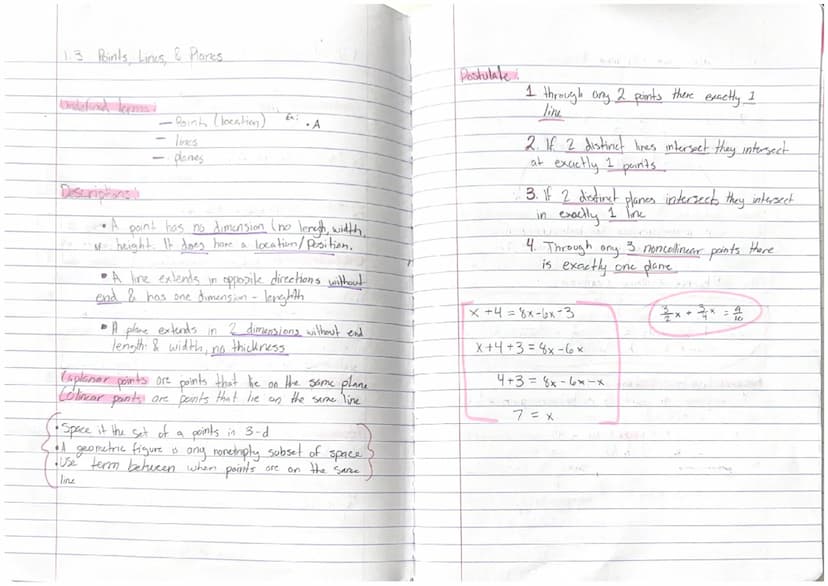 1.3 Points, Lines, & Planes
Undefined terms
— Points (location) Ex: • A
— lines
— planes
Descriptions
• A point has no dimension (no length, width,
or height. It does have a location/position.
• A line extends in opposite directions without
end & has one dimension - lenghth
• A plane extends in 2 dimensions without end
length & width, no thickness
Coplanar points are points that lie on the same plane
Colinear points are points that lie on the same line
• Space it the set of a points in 3-d
• A geometric figure is any nonempty subset of space
• Use term between when points are on the same
line
Postulate:
1 through any 2 points there exactly 1
line
2. If 2 distinct lines intersect they intersect
at exactly 1 points
3. If 2 distinct planes intersects they intersect
in exactly 1 line
4. Through any 3 noncollinear points there
is exactly one plane
x + 4 = 8x - 6x - 3
x + 4 + 3 = 8x - 6x
4 + 3 = 8x - 6x - x
7 = x
3/2 x + 3/4 x = 9/10